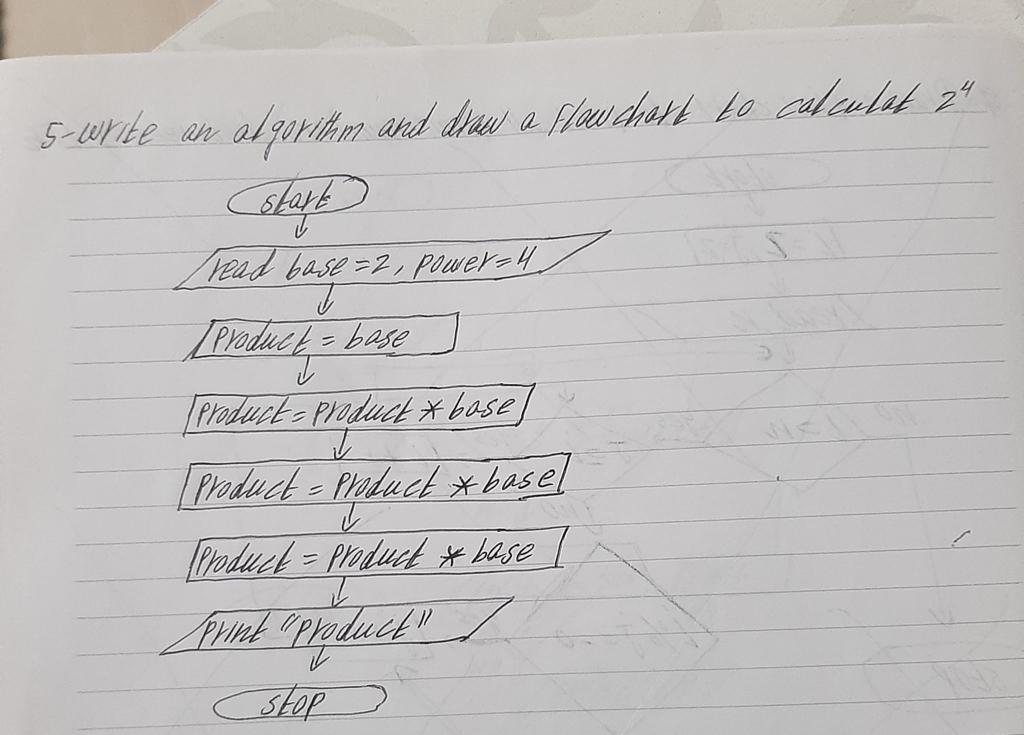 5-write an algorithm and draw a flowchart to calculat 2⁴
start
read base=2, power=4
product = base
product = product * base
product = product * base
product = product * base
print "product"
stop